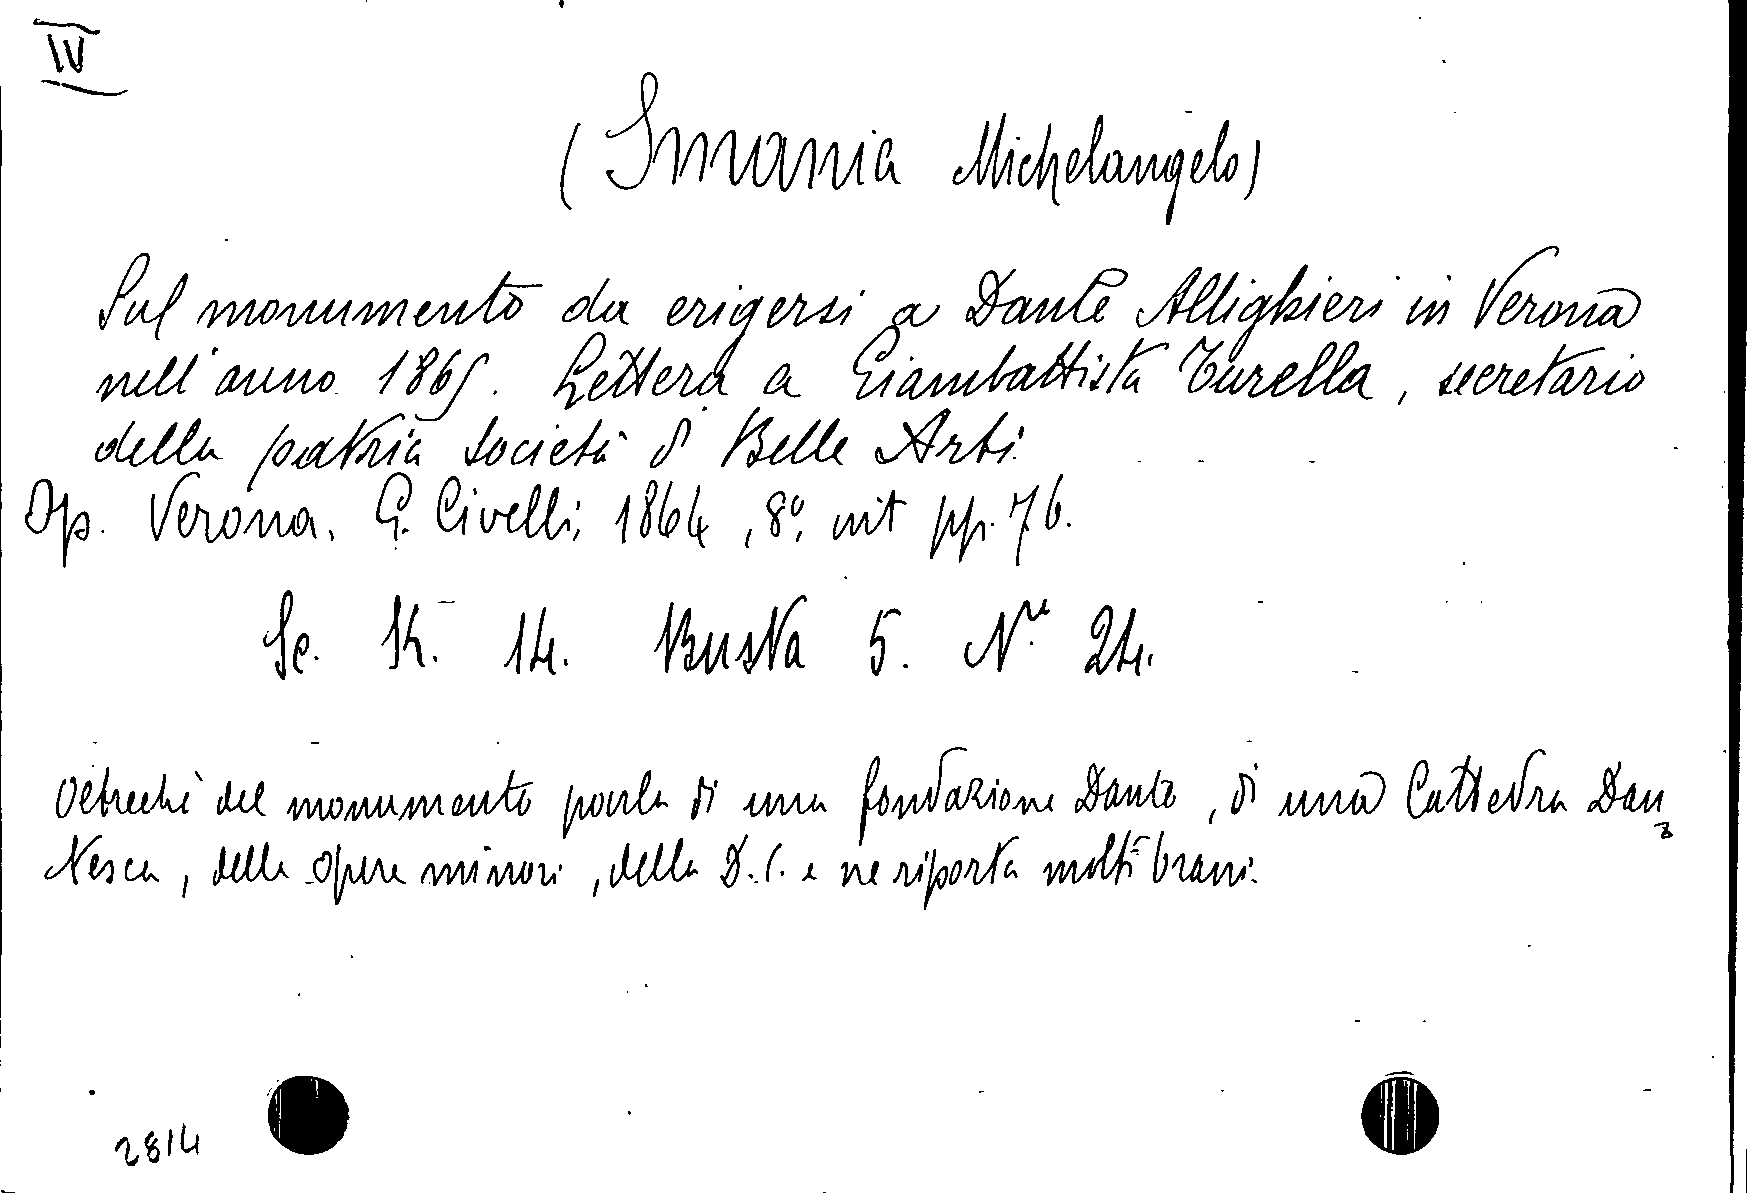 IV
(Smania Michelangelo)
Sul monumento da erigersi a Dante Allighieri in Verona
nell'anno 1865. Lettera a Giambattista Turella, secretario
della patria società di Belle Arti.
Op. Verona, G. Civelli, 1864, 8°, mit pp. 76.
Sc. K. 14. Busta 5. N.re 24.
Oltrechè del monumento parla di una fondazione Dante, di una Cattedra Dan
tesca, delle opere minori, della D.C. e ne riporta molti brani.
2814